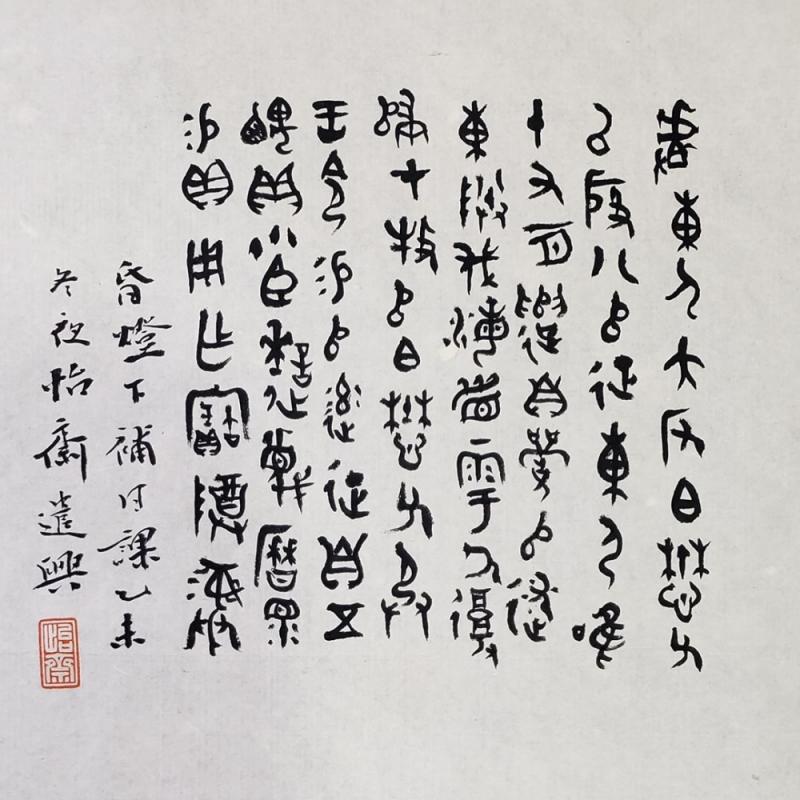 𠭯東夷大反白懋父
以殷八𠂤征東夷唯
十又一月遣自𩰫𠂤述
東陕伐海眉雩厥復
歸才牧𠂤白懋父承
王令易𠂤率征自五
齵貝小臣謎蔑曆眔
易貝用乍寶尊彝
昏燈下補日課乙未
冬夜怡齋遣興
怡齋